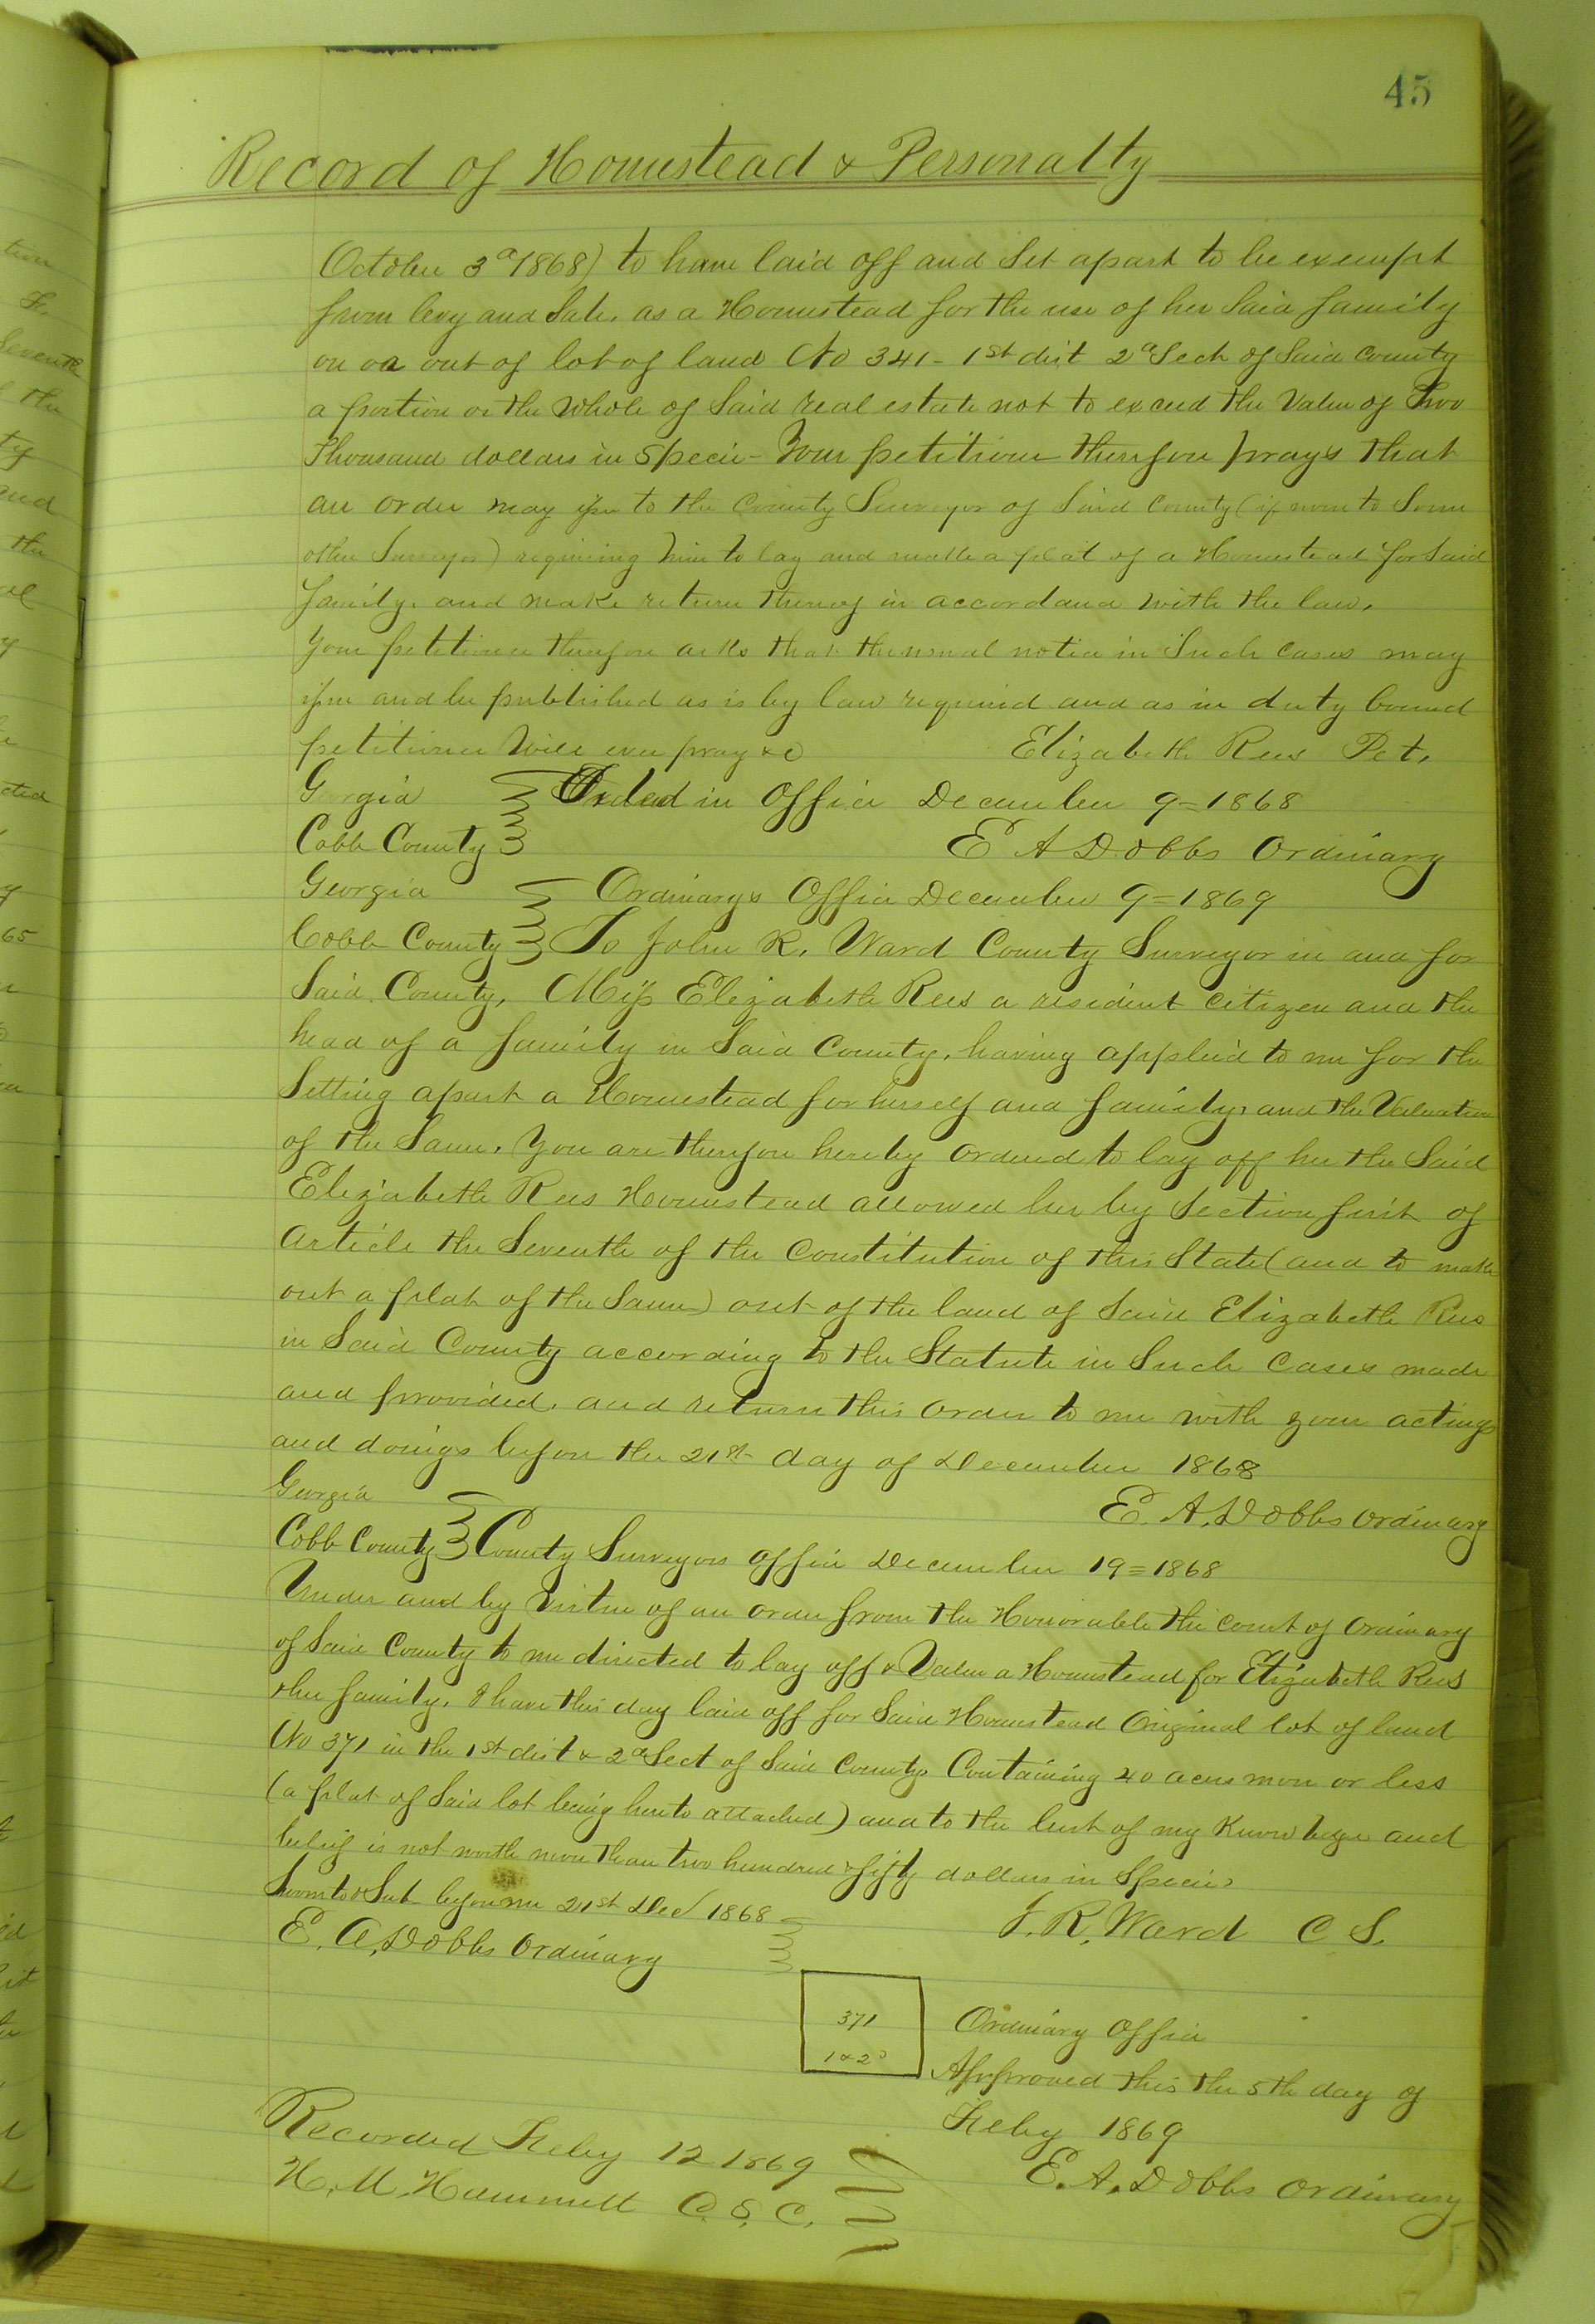 45
Record of Homestead & Personalty
October 3d 1868) to have laid off and Set apart to be exempt
from levy and Sale. as a Homestead for the use of her Said family
on or out of lot of land No 341 - 1st dist 2d Sect of Said County
a portion or the whole of Said real estate not to exceed the Value of Two
Thousand dollars in Specie - Your petitioner therefore prays that
an order may issue to the County Surveyor of Said County (if none to Some
other Surveyor) requiring him to lay and make a plat of a Homestead for Said
family. and make return thereof in accordance with the law.
Your petitioner therefore asks that the usual notice in Such cases may
issue and be published as is by law required and as in duty bound
petitioner Will ever pray &c Elizabeth Rees Pet.
Georgia in Office December 9=1868
Cobb County E A Dobbs Ordinary
Georgia Ordinarys Office December 9=1869
Cobb County To John R. Ward County Surveyor in and for
Said County, Miss Elizabeth Rees a resident citizen and the
head of a family in Said County, having applied to me for the
Setting apart a Homestead for herself and family, and the Valuation
of the Same. You are therefore hereby ordered to lay off her the Said
Elizabeth Rees Homestead allowed her by Section first of
Article the Seventh of the Constitution of this State (and to make
out a plat of the Same) out of the land of Said Elizabeth Rees
in Said County according to the Statute in Such Cases made
and provided. and return this order to me with your actings
and doings before the 21st day of December 1868
Georgia E. A. Dobbs Ordinary
Cobb County County Surveyors office December 19=1868
Under and by Virtue of an order from the Honorable the court of Ordinary
of Said County to me directed to lay off & Value a Homestead for Elizabeth Rees
& her family. I have this day laid off for Said Homestead Original lot of land
No 371 in the 1st dist & 2d Sect of Said County. Containing 40 acres more or less
(a plat of Said lot being hereto attached) and to the best of my Knowledge and
belief is not worth more than two hundred & fifty dollars in Specie.
Sworn to & Sub before me 21st Dec 1868
J. R. Ward C S.
E. A. Dobbs Ordinary
371
1 & 2d
Ordinary Office
Approved this the 5th day of
Feby 1869
E. A. Dobbs Ordinary
Recorded Feby 12 1869
H. M. Hammett C. S. C.